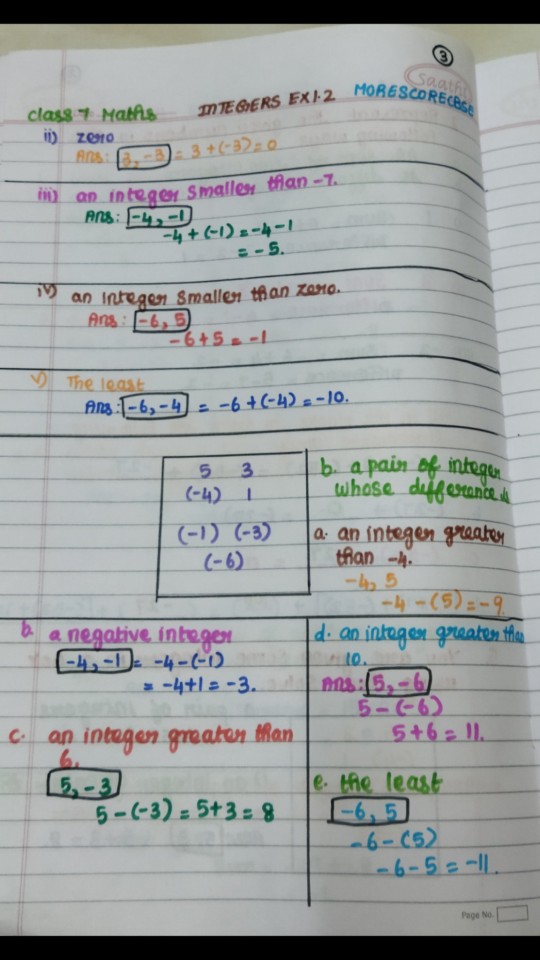 3
Saathi
class 7 Maths INTEGERS EX 1.2 MORESCORECBSE
ii) zero
Ans: 3, -3 = 3 + (-3) = 0
iii) an integer smaller than -7.
Ans: -4, -1
-4 + (-1) = -4 - 1
= -5.
iv) an integer smaller than zero.
Ans: -6, 5
-6 + 5 = -1
v) The least
Ans: -6, -4 = -6 + (-4) = -10.
5 3
(-4) 1
(-1) (-3)
(-6)
b. a pair of integer
whose difference is
a. an integer greater
than -4.
-4, 5
-4 - (5) = -9.
b. a negative integer
-4, -1 = -4 - (-1)
= -4 + 1 = -3.
c. an integer greater than
6.
5, -3
5 - (-3) = 5 + 3 = 8
d. an integer greater than
10.
Ans: 5, -6
5 - (-6)
5 + 6 = 11.
e. the least
-6, 5
-6 - (5)
-6 - 5 = -11.
Page No.